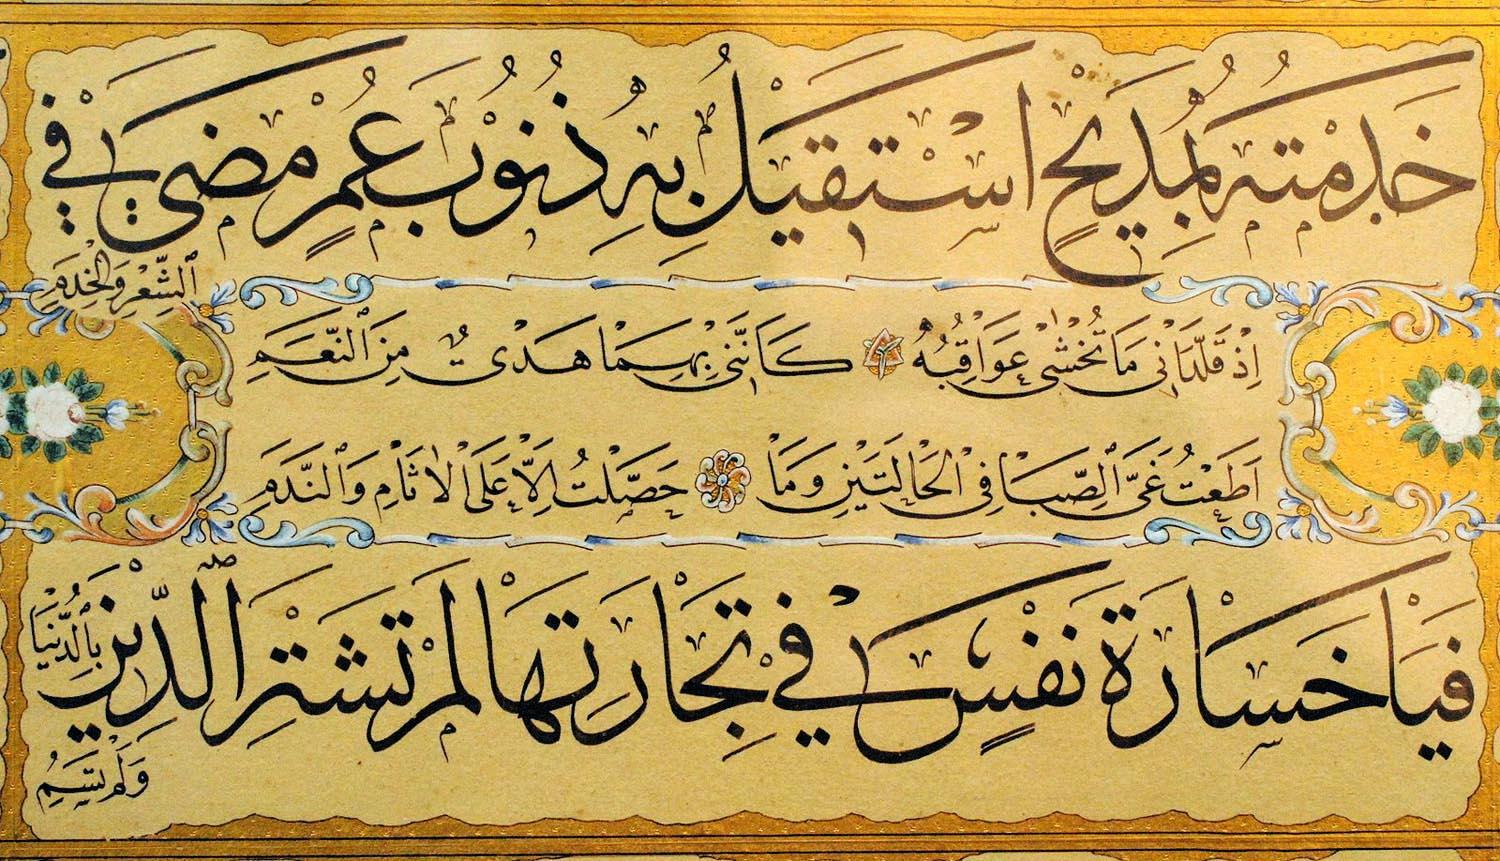 خَدَمْتُهُ بِمَدِيحٍ اسْتَقِيلُ بِهِ ذُنُوبَ عُمْرٍ مَضَى فِي
الشِّعْرِ وَالْخِدَمِ
اِذْ قَلَّدَانِيَ مَا تُخْشَى عَوَاقِبُهُ كَاَنَّنِي بِهِمَا هَدْىٌ مِنَ النَّعَمِ
اَطَعْتُ غَىَّ الصِّبَا فِي الْحَالَتَيْنِ وَمَا حَصَّلْتُ اِلَّا عَلَى الْاٰثَامِ وَالنَّدَمِ
فَيَا خَسَارَةَ نَفْسٍ فِي تِجَارَتِهَا لَمْ تَشْتَرِ الدِّينَ بِالدُّنْيَا
وَلَمْ تَسُمِ